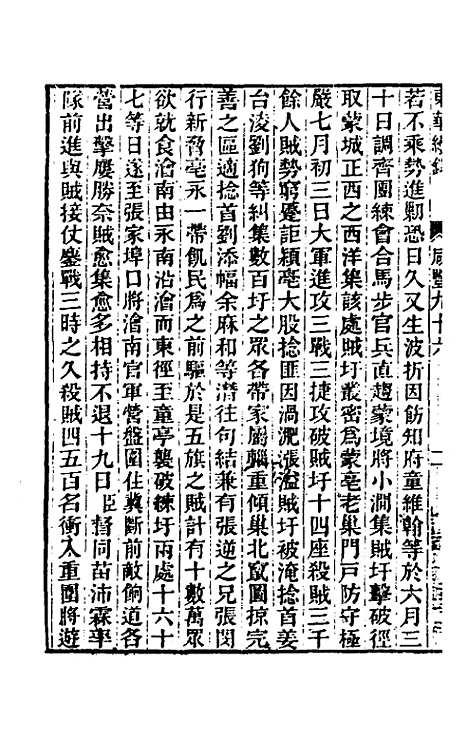 東華續錄 咸豐九十六
若不乘勢進勦恐日久又生波折因飭知府童維翰等於六月三
十日調齊團練會合馬步官兵直趨蒙境將小澗集賊圩擊破徑
取蒙城正西之西洋集該處賊圩叢密爲蒙亳老巢門戸防守極
嚴七月初三日大軍進攻三戰三捷攻破賊圩十四座殺賊三千
餘人賊勢窮蹙詎潁亳大股捻匪因渦淝漲溢賊圩被淹捻首姜
台淩劉狗等糾集數百圩之眾各帶家屬輜重傾巢北竄圖掠完
善之區適捻首劉添幅余麻和等潛往句結兼有張逆之兄張閔
行新脅亳永一帶飢民爲之前驅於是五旗之賊計有十數萬眾
欲就食澮南由永南沿澮而東徑至童亭襲破練圩兩處十六十
七等日遂至張家埠口將澮南官軍營盤圍住冀斷前敵餉道各
營出擊屢勝奈賊愈集愈多相持不退十九日臣督同苗沛霖率
隊前進與賊接仗鏖戰三時之久殺賊四五百名衝入重圍將遊